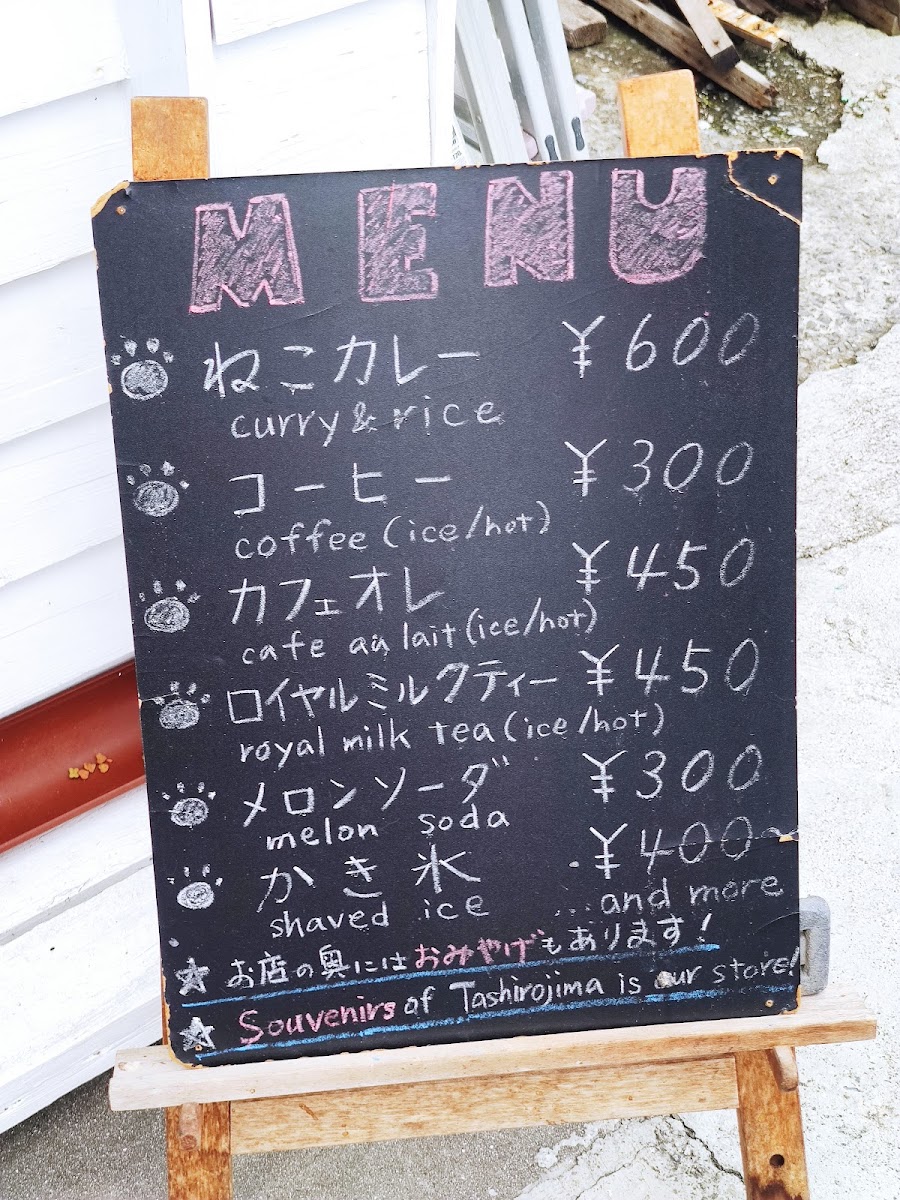 MENU
ねこカレー ¥600
curry & rice
コーヒー ¥300
coffee (ice/hot)
カフェオレ ¥450
cafe au lait (ice/hot)
ロイヤルミルクティー ¥450
royal milk tea (ice/hot)
メロンソーダ ¥300
melon soda
かき氷 ¥400
shaved ice ...and more
☆ お店の奥にはおみやげもあります!
☆ Souvenirs of Tashirojima is our store!